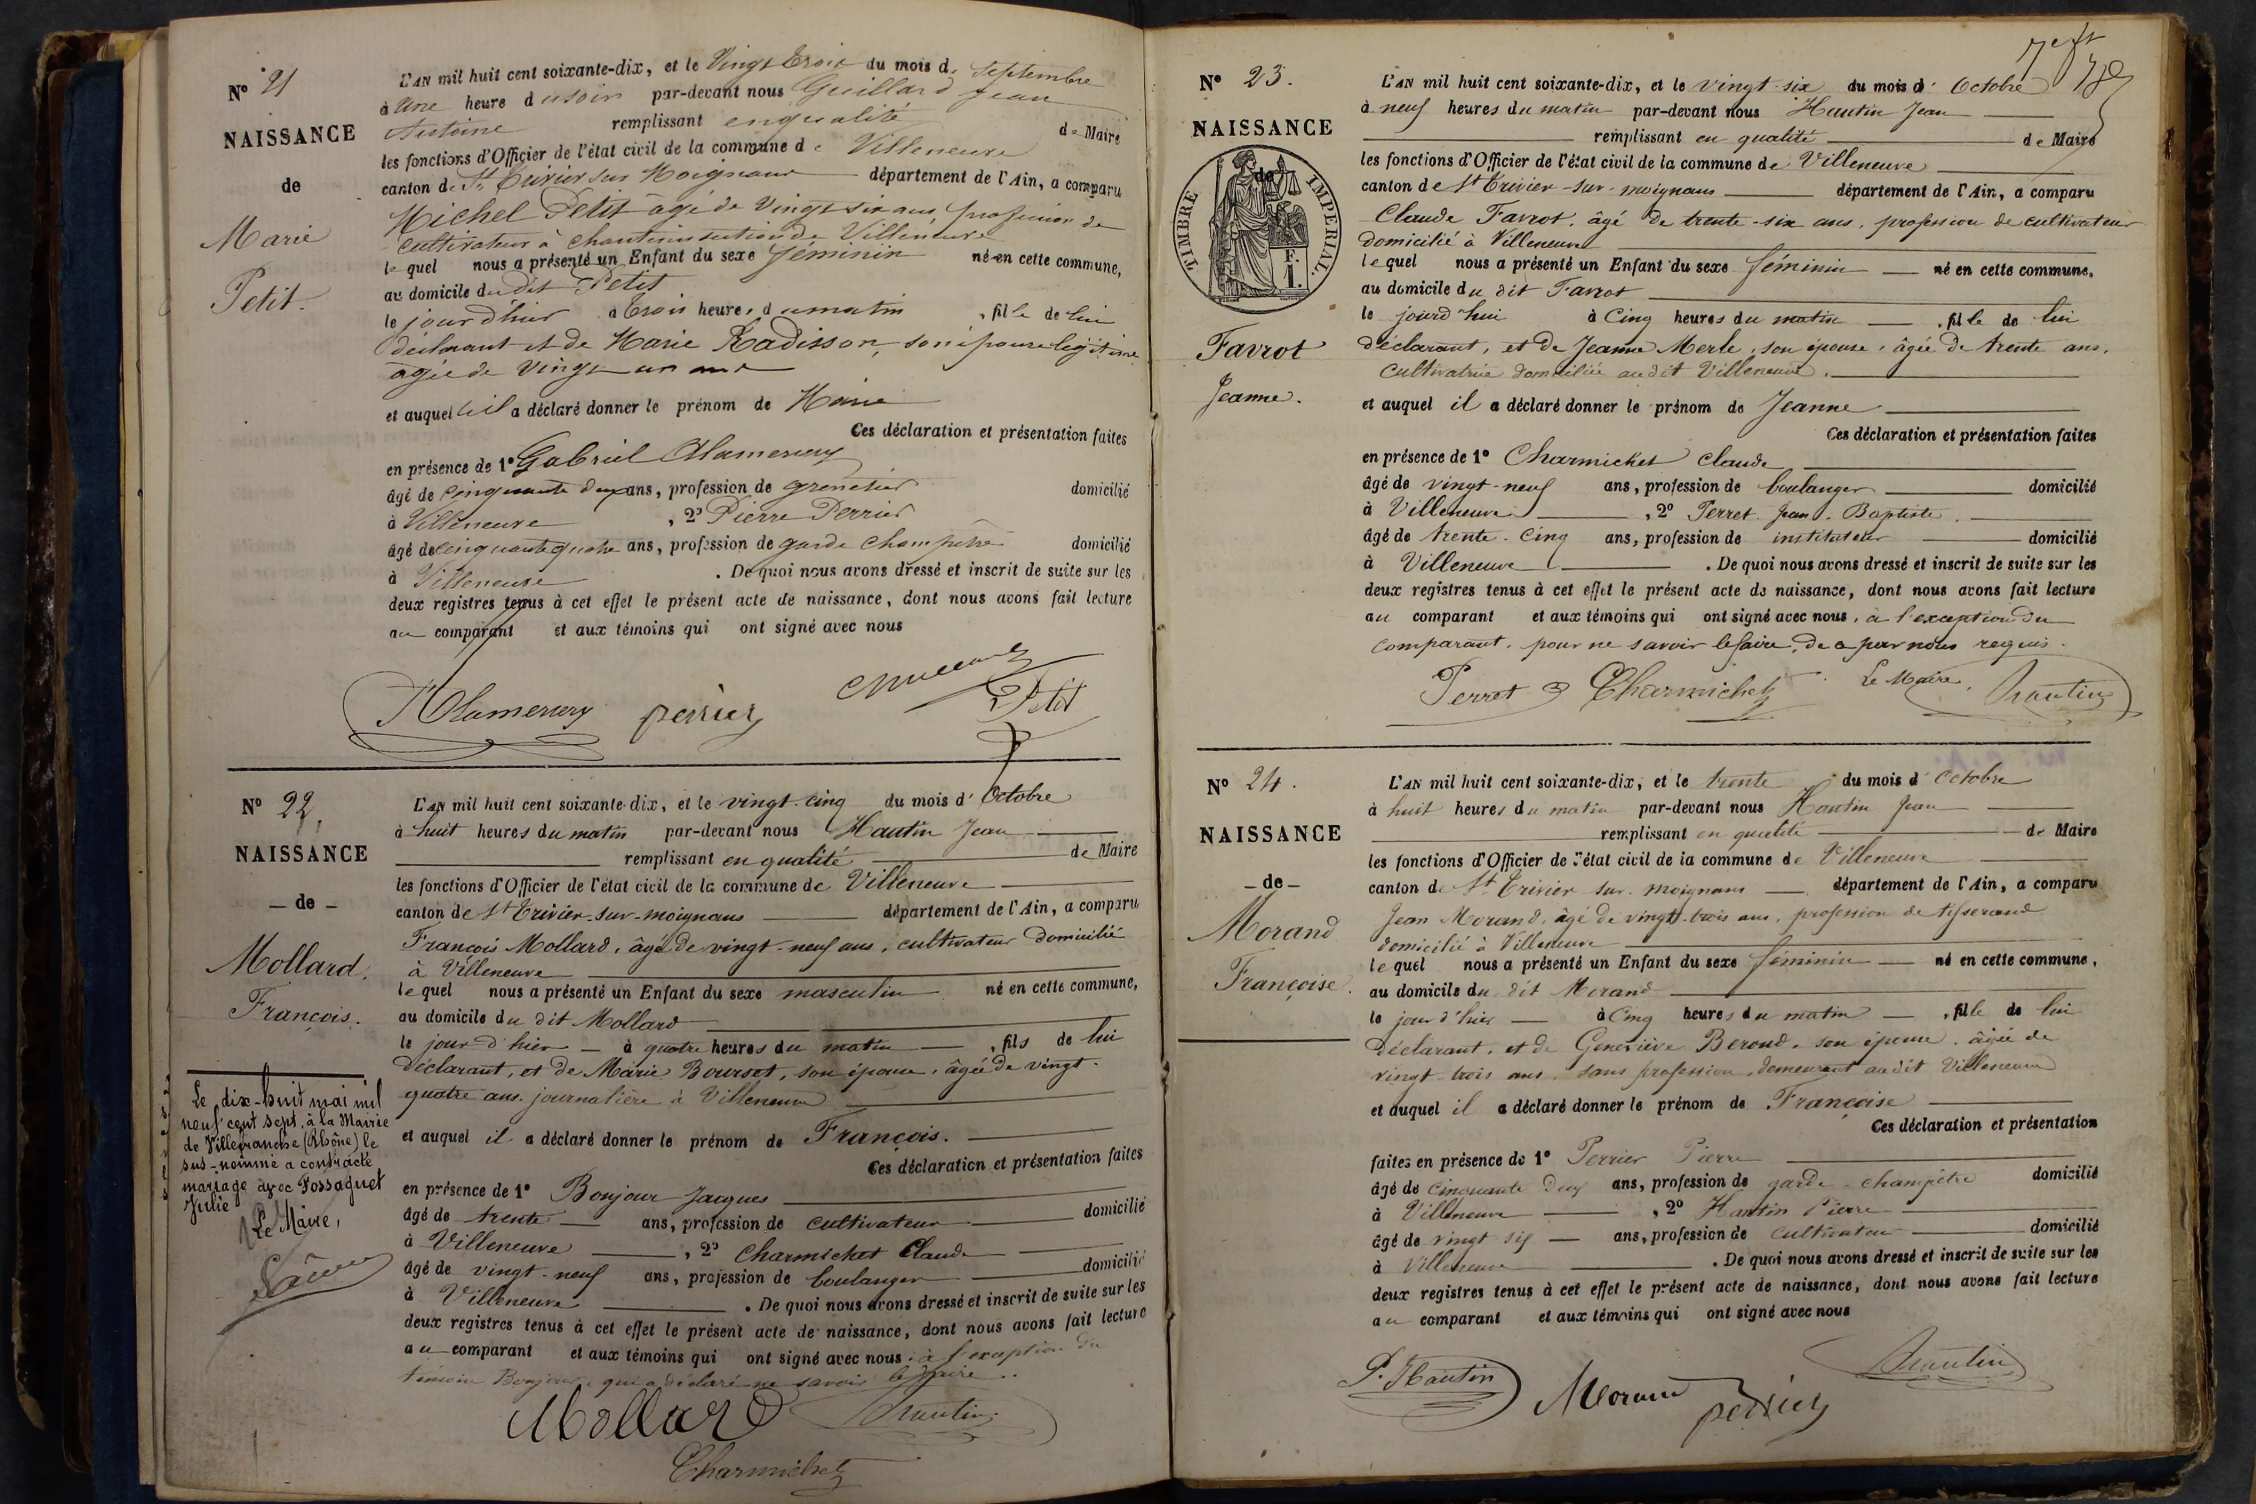 N° 21
NAISSANCE
de
Marie
Petit.
L'AN mil huit cent soixante-dix, et le Vingt trois du mois de Septembre
à une heure du soir par-devant nous Guillard Jean
Antoine remplissant en qualité de Maire
les fonctions d'Officier de l'état civil de la commune de Villeneuve
canton de St Trivier sur Moignans département de l'Ain, a comparu
Michel Petit âgé de Vingt six ans, profession de
cultivateur à section de Villeneuve
lequel nous a présenté un Enfant du sexe féminin né en cette commune,
au domicile du dit Petit
le jour d'hier à trois heures du matin, fille de lui
déclarant et de Marie Radisson, son épouse légitime
agée de Vingt un ans
et auquel il a déclaré donner le prénom de Marie
Ces déclaration et présentation faites
en présence de 1° Gabriel Alamercery
âgé de cinquante deux ans, profession de domicilié
à Villeneuve, 2° Pierre Perrier
âgé de cinquante quatre ans, profession de garde champêtre domicilié
à Villeneuve. De quoi nous avons dressé et inscrit de suite sur les
deux registres tenus à cet effet le présent acte de naissance, dont nous avons fait lecture
au comparant et aux témoins qui ont signé avec nous
Alamercery perrier Petit
N° 22.
NAISSANCE
- de -
Mollard.
François.
L'AN mil huit cent soixante-dix, et le vingt-cinq du mois d'Octobre
à huit heures du matin par-devant nous Hautin Jean
remplissant en qualité de Maire
les fonctions d'Officier de l'état civil de la commune de Villeneuve
canton de St Trivier-sur-moignans département de l'Ain, a comparu
François Mollard, âgé de vingt-neuf ans, cultivateur domicilié
à Villeneuve
lequel nous a présenté un Enfant du sexe masculin né en cette commune,
au domicile du dit Mollard
le jour d'hier à quatre heures du matin, fils de lui
déclarant, et de Marie Bourset, son épouse, âgée de vingt-
quatre ans. journalière à Villeneuve
et auquel il a déclaré donner le prénom de François.
Ces déclaration et présentation faites
en présence de 1° Bonjour Jacques
âgé de trente ans, profession de cultivateur domicilié
à Villeneuve, 2° Charmichet Claude
âgé de vingt-neuf ans, profession de boulanger domicilié
à Villeneuve. De quoi nous avons dressé et inscrit de suite sur les
deux registres tenus à cet effet le présent acte de naissance, dont nous avons fait lecture
au comparant et aux témoins qui ont signé avec nous, à l'exception du
témoin Bonjour, qui a déclaré ne savoir le faire.
Mollard Hautin
Charmichet
Le dix-huit mai mil
neuf cent sept, à la Mairie
de Villefranche (Rhône) le
sus-nommé a contracté
mariage avec Fossaquet
Julie
Le Maire,
N° 23.
NAISSANCE
de
TIMBRE IMPERIAL.
F.
1.
Favrot
Jeanne.
L'AN mil huit cent soixante-dix, et le vingt-six du mois d'Octobre
à neuf heures du matin par-devant nous Hautin Jean
remplissant en qualité de Maire
les fonctions d'Officier de l'état civil de la commune de Villeneuve
canton de St Trivier-sur-moignans département de l'Ain, a comparu
Claude Favrot, âgé de trente-six ans, profession de cultivateur
domicilié à Villeneuve
lequel nous a présenté un Enfant du sexe féminin né en cette commune,
au domicile du dit Favrot
le jourd'hui à cinq heures du matin, fille de lui
déclarant, et de Jeanne Merle, son épouse, âgée de trente ans,
cultivatrice domiciliée audit Villeneuve.
et auquel il a déclaré donner le prénom de Jeanne
Ces déclaration et présentation faites
en présence de 1° Charmichet Claude
âgé de vingt-neuf ans, profession de boulanger domicilié
à Villeneuve, 2° Perret Jean-Baptiste.
âgé de trente-cinq ans, profession de instituteur domicilié
à Villeneuve. De quoi nous avons dressé et inscrit de suite sur les
deux registres tenus à cet effet le présent acte de naissance, dont nous avons fait lecture
au comparant et aux témoins qui ont signé avec nous, à l'exception du
comparant, pour ne savoir le faire, de ce par nous requis.
Perret Charmichet Le Maire, Hautin
N° 24.
NAISSANCE
- de -
Morand
Françoise.
L'AN mil huit cent soixante-dix, et le trente du mois d'Octobre
à huit heures du matin par-devant nous Hautin Jean
remplissant en qualité de Maire
les fonctions d'Officier de l'état civil de la commune de Villeneuve
canton de St Trivier-sur-moignans département de l'Ain, a comparu
Jean Morand, âgé de vingt-trois ans, profession de tisserand
domicilié à Villeneuve
lequel nous a présenté un Enfant du sexe féminin né en cette commune,
au domicile du dit Morand
le jour d'hier à cinq heures du matin, fille de lui
déclarant, et de Geneviève Beroud, son épouse, âgée de
vingt-trois ans, sans profession, demeurant audit Villeneuve
et auquel il a déclaré donner le prénom de Françoise
Ces déclaration et présentation
faites en présence de 1° Perrier Pierre
âgé de cinquante deux ans, profession de garde-champêtre domicilié
à Villeneuve, 2° Hautin Pierre
âgé de vingt six ans, profession de cultivateur domicilié
à Villeneuve. De quoi nous avons dressé et inscrit de suite sur les
deux registres tenus à cet effet le présent acte de naissance, dont nous avons fait lecture
au comparant et aux témoins qui ont signé avec nous
P. Hautin Morand perrier Hautin